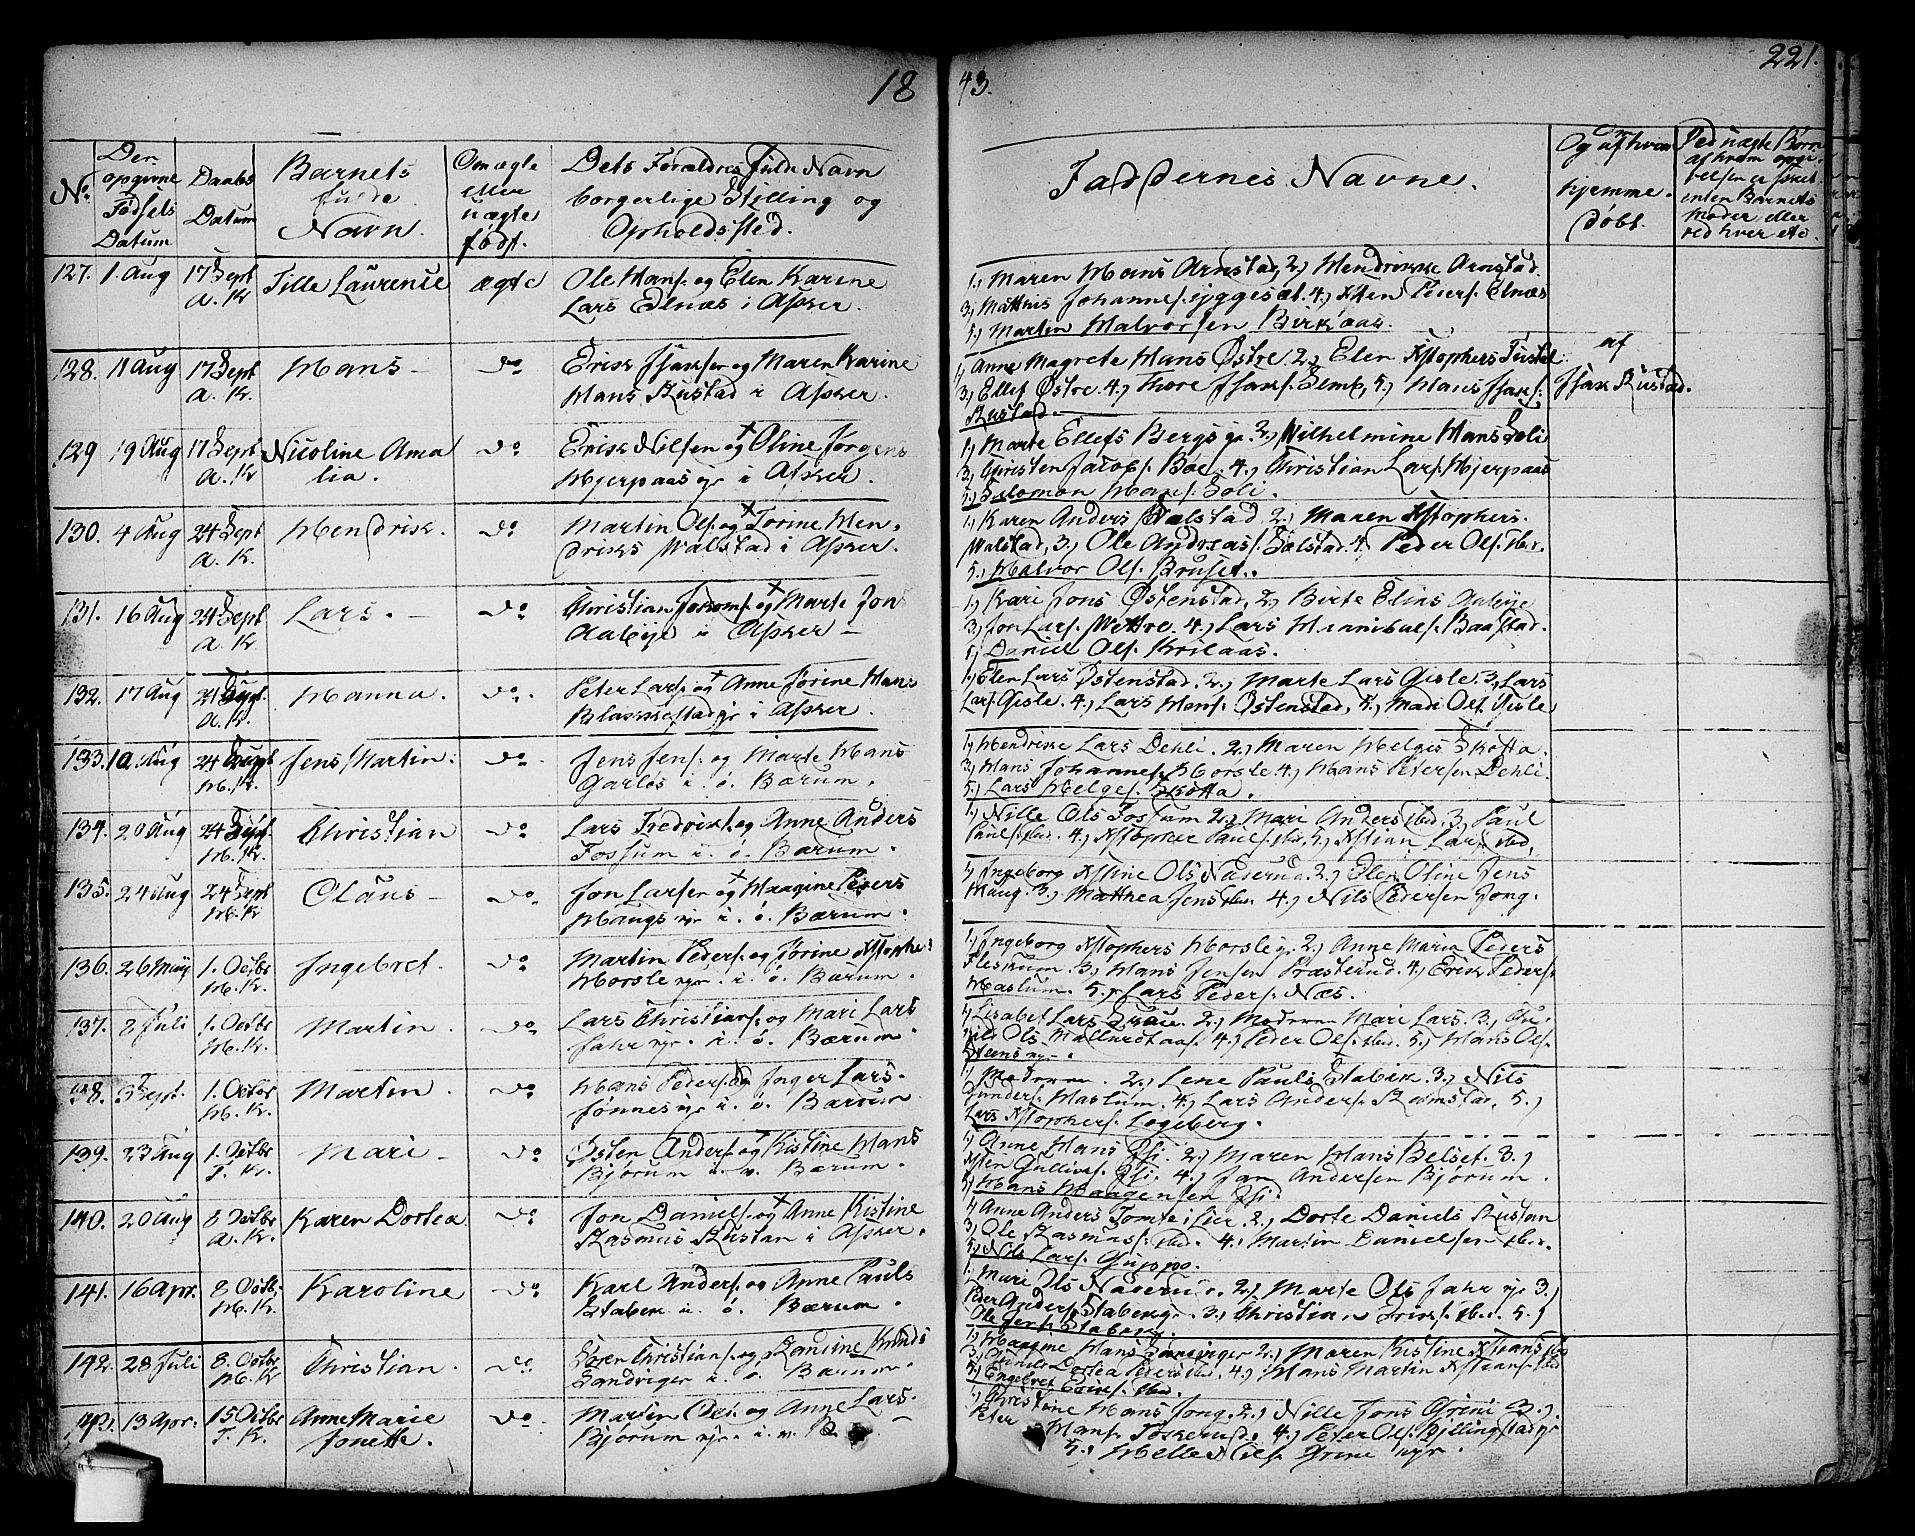 18
43.
221.
No.
Den opgivne Fødsels Datum
Daabs Datum
Barnets fulde Navn.
Om ægte eller uægte født.
Dets Forældres fulde Navn borgerlige Stilling og Opholdssted.
Faddernes Navne.
Om og af hvem hjemme-døbt.
127. 1. Aug 17 Sept A. K. Tille Laurense ægte
Ole Hans. og Elen Karine
Lars Elnæs i Asker.
1, Maren Hans Arnstad, 2, Hendrikke Arnstad.
5, Martin Halvorsen Birkaas.
128. 11 Aug 17 Sept A. K. Hans - do
Erik Isaksen og Maren Karine
Hans Rustad i Asker.
1, Anne Magrete Hans Østre 2, Elen Xstophers
3, Ellef Østre. 4, Thore Isaks. 5, Hans Isaks.
Rustad.
af
Isak Rustad.
129 19 Aug 17 Sept A. K. Nicoline Amalia. do
Erik Nilsen og Oline Jørgens
Hjerpaas i Asker.
1, Marte Ellefs Bergs 2, Wilhelmine Hans Soli
3, Christen Jacobs. Böe. 4, Christian Lars. Hjerpaas
5, Salomon Hans. Soli.
130. 4 Aug 24 Sept A. K. Hendrik. do
Martin Ols. og Torine Hen-
driks Walstad i Asker.
1, Karen Anders Walstad 2, Maren Xstophers
Walstad, 3, Ole Andreas. 4, Peder Ols. ibid.
5, Halvor Ols. Bruset.
131. 16 Aug 24 Sept A. K. Lars. - do
Christian og Marte Jons
Aabÿe i Asker -
1, Kari Jons Østenstad, 2, Birte Elias Aabÿe
3, Jon Lars. Wettre 4, Lars Hannibals. Baastad.
5, Daniel Ols.
132. 17 Aug 24 Sept. A. K. Hanna. do
Peter Lars. og Anne Jorine Hans
Blakkestad i Asker.
1, Elen Lars Østenstad. 2, Marte Lars Gisle. 3, Lars
Lars. Gisle. 4, Lars Hans. Østenstad, 5, Ols. Gisle
133. 10 Aug 24 Sept H. K. Jens Martin. do
Jens Jens. og Marte Hans
Garløs i. ö. Bærum.
1, Hendrikke Lars Dehli. 2, Maren Helges Skotta.
3, Hans Johannes. Horsle. 4, Hans Petersen Dehli.
5, Lars Helges. Skotta.
134. 20 Aug 24 Sept. H. K. Christian do
Lars Fredriks. og Anne Anders
Fossum i. ö. Bærum.
1, Nille Ols Fossum 2, Mari Anders ibid, 3, Paul
Pauls. ibid. 4, Xstopher Pauls. ibid, 5, Xstian Lars. ibid,
135. 24 Aug 24 Sept H. K. Olaus - do
Jon Larsen og Maagine Peders
Haugs i. ö. Bærum.
1, Ingeborg Xstine Ols Naderud. 2, Elen Oline Jens
Haug. 3, Matthea Jens ibid. 4, Nils Pedersen Jong.
136. 26 1. Octbr H. K. Ingebret. do
Martin Peders. og Jørine Xstophe-
Horsle i. ö. Bærum.
1, Ingeborg Xstophers Horsle 2, Anne Maria Peders
Fleskum. 3, Hans Jensen Præsterud. 4, Erik Peders.
Haslum. 5, Lars Peders. Næs.
137. 8 Juli 1. Octbr H. K. Martin. do
Lars Christians. og Mari Lars
Jahr i. ö. Bærum
1, Lisabet Lars 2, Moderen Mari Lars. 3,
4, Peder Ols. ibid. 5, Hans Ols.
138. Sept. 1. Octbr H. K. Martin. do
Hans Peders. og Inger Lars.
Jønnes i. ö. Bærum
1, Moderen. 2, Lene Pauls Stabæk 3, Nils
Gunders. Haslum. 4, Lars Anders. Ramstad, 5,
Lars Xstophers. Løgeberg.
139. 23 Aug 1. Octbr T. K. Mari - do
Østen Anders. og Kistine Hans
Bjørum i. v. Bærum.
1, Anne Hans 2, Maren Hans Belset. 3,
4, Jan Andersen Bjørum.
5, Hans Haagensen
140. 20 Aug 8 Octbr A. K. Karen Dortea do
Jon Daniels. og Anne Kistine
Rasmus Rustan i Asker.
1, Anne Anders Tomte i Lier. 2, Dorte Daniels Rustan
3, Ole Rasmus. ibid. 4, Martin Danielsen ibid.
5, Nils Lars. Guppo.
141. 16 Apr. 8 Octbr H. K. Karoline do
Karl Anders. og Anne Pauls
Stabek i. ö. Bærum.
1, Mari Ols Naderud. 2, Marte Ols Jahr 3,
Peder Anders. 3, Christian ibid. 5,
Ole Jens.
142. 28 Juli 8. Octbr H. K. Christian. do
Søren Christians. og Knuds
Sandviger i. ö. Bærum.
1, Maagine Hans Sandviger 2, Maren Kistine Xstians ibid
3, Dortea Peders ibid. 4, Hans Martin Xstians. ibid
5, Engebret ibid.
143. 13 Apr. 15 Octbr T. K. Anne Marie Jonette. do
Martin Ols. og Anne Lars.
Bjørum i. v. B
1, Christine Hans Jong. 2, Nille Jons Grini 3,
Peter Hans. 4, Peter Ols. Billingstad
5, Helle Nils. Grini